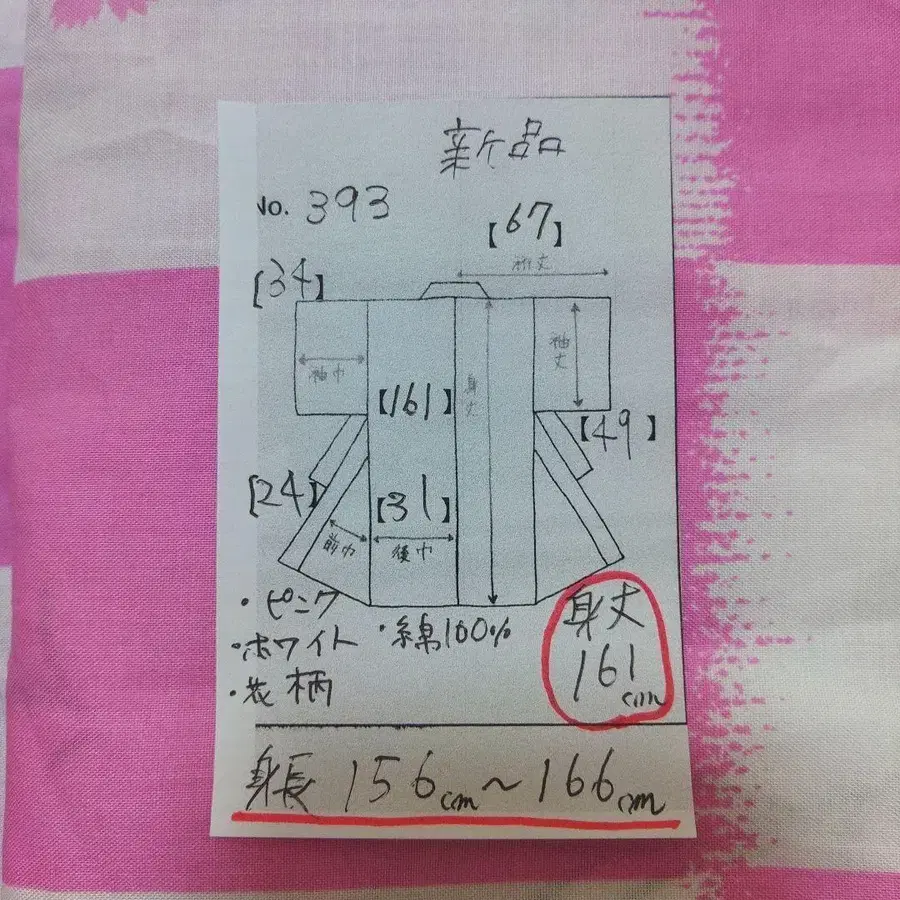 新品
No. 393
【67】
裄丈
【34】
袖巾
袖丈
【161】
身丈
【49】
【24】
【31】
前巾
後巾
・ピンク
・ホワイト
・綿100%
・花柄
身丈
161
cm
身長 156cm～166cm